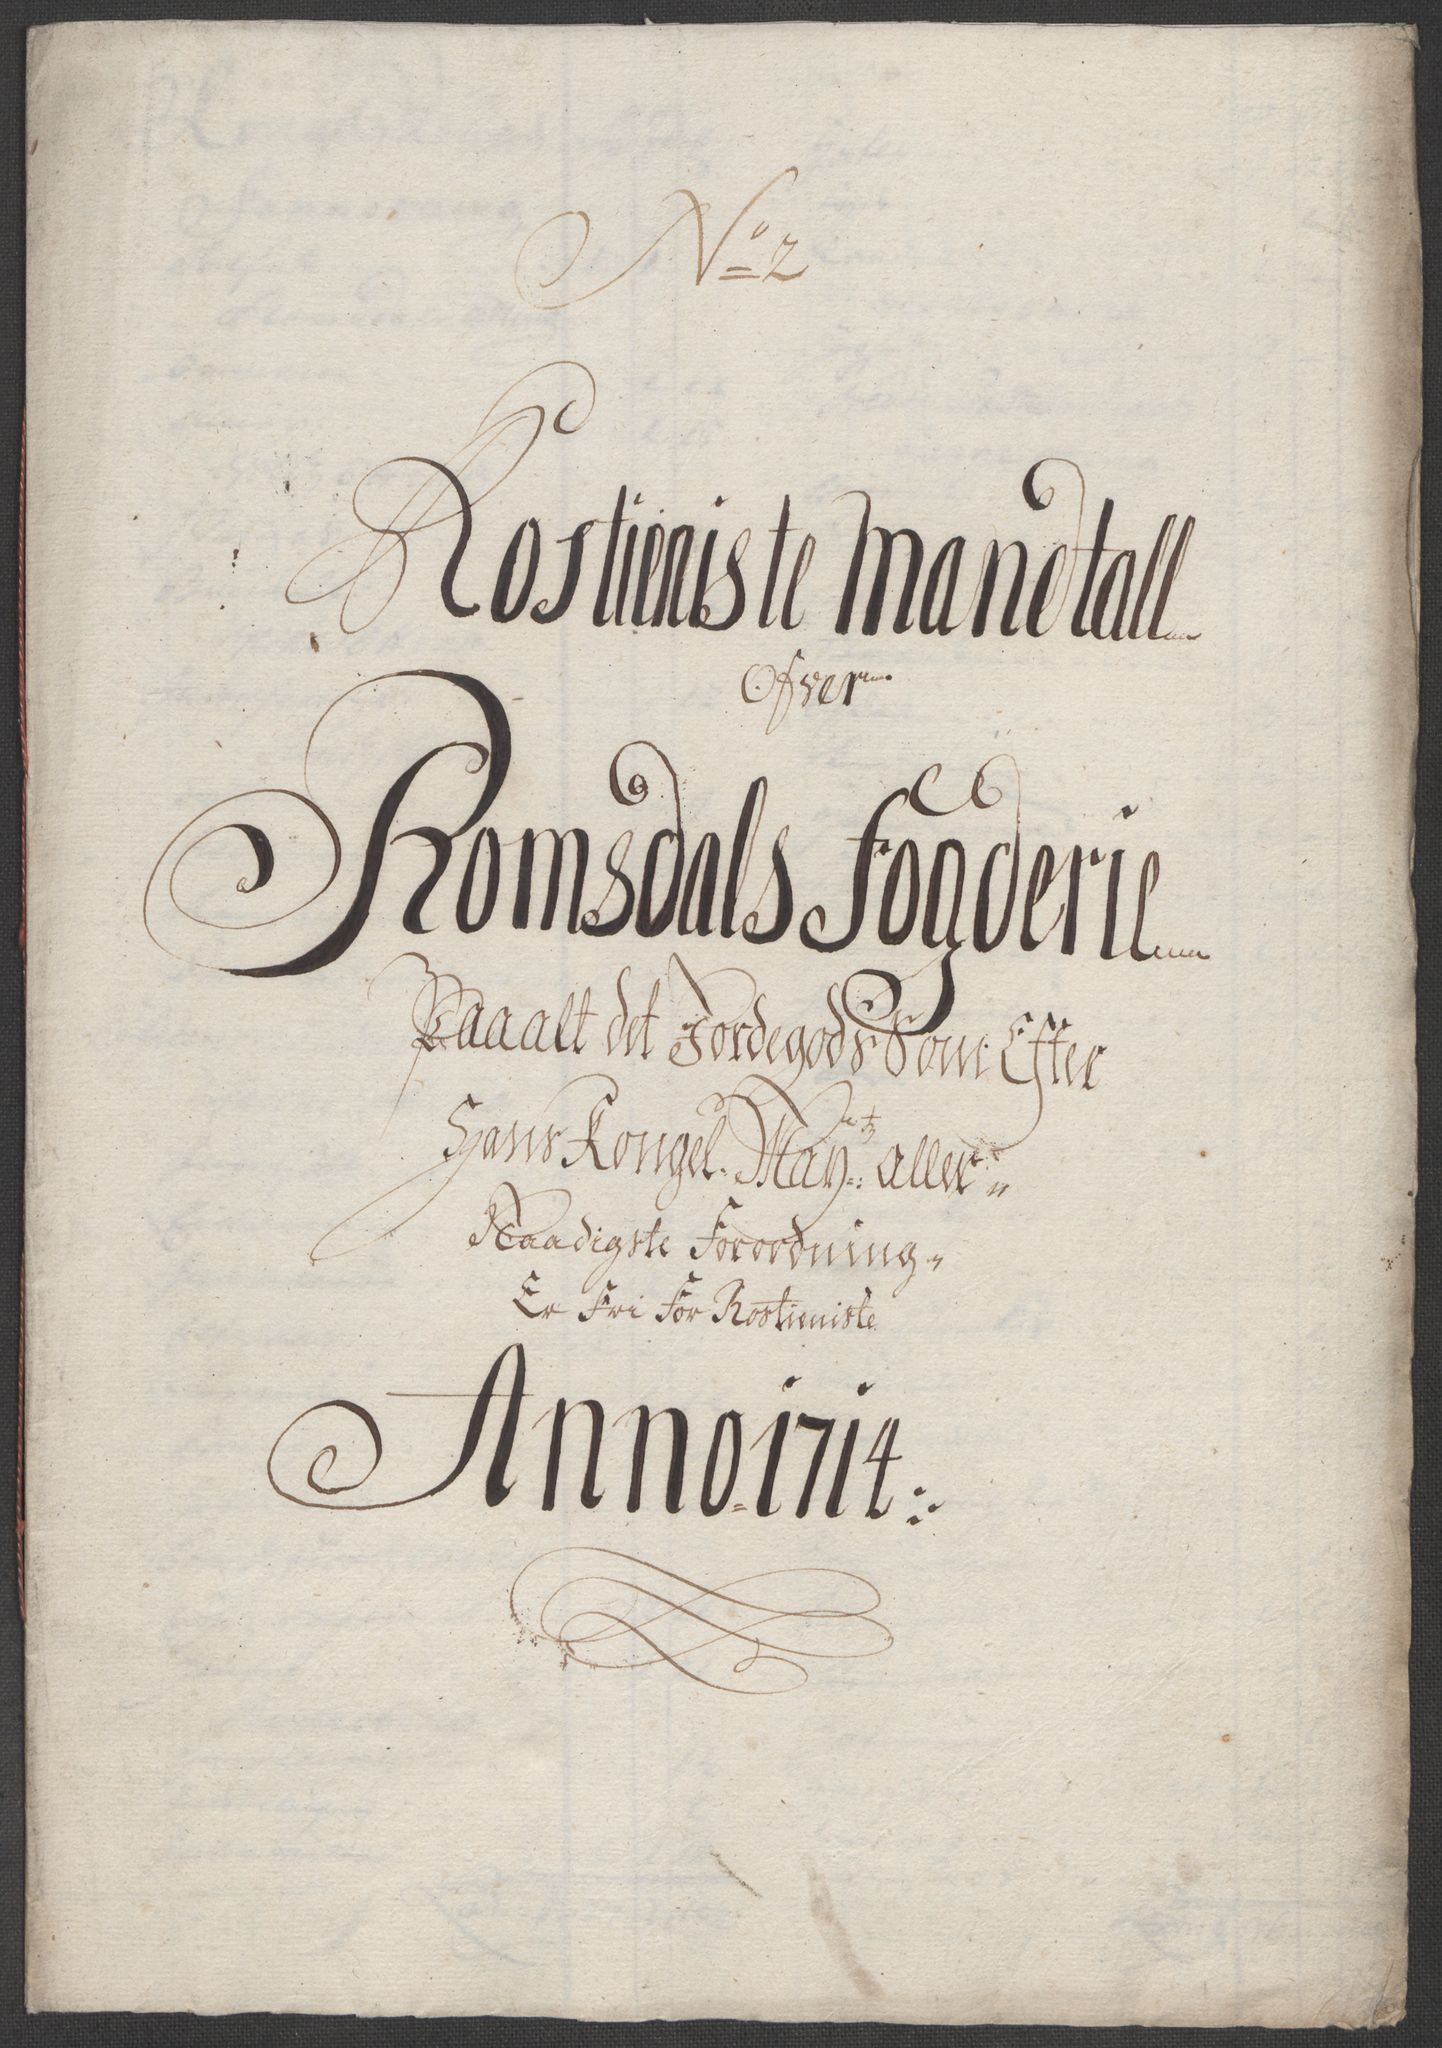 No 2
Rostieniste Mandtall
Ofver
Romsdals Fogderie
Paa alt det Jordegods Som Efter
Hans Kongel. May:tz aller=
Naadigste Forordning
Er Fri For Rostieniste
Anno 1714